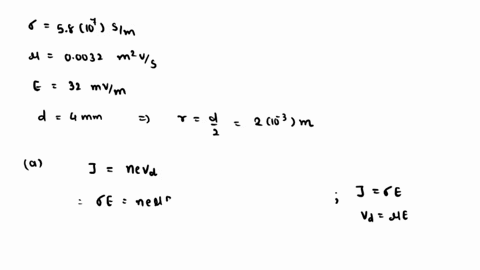 σ = 5.8 (10⁷) S/m
μ = 0.0032 m²V/s
E = 32 mV/m
d = 4 mm ⇒ r = d/2 = 2(10⁻³) m
(a) J = neVd
= σE = neμ
; J = σE
Vd = μE